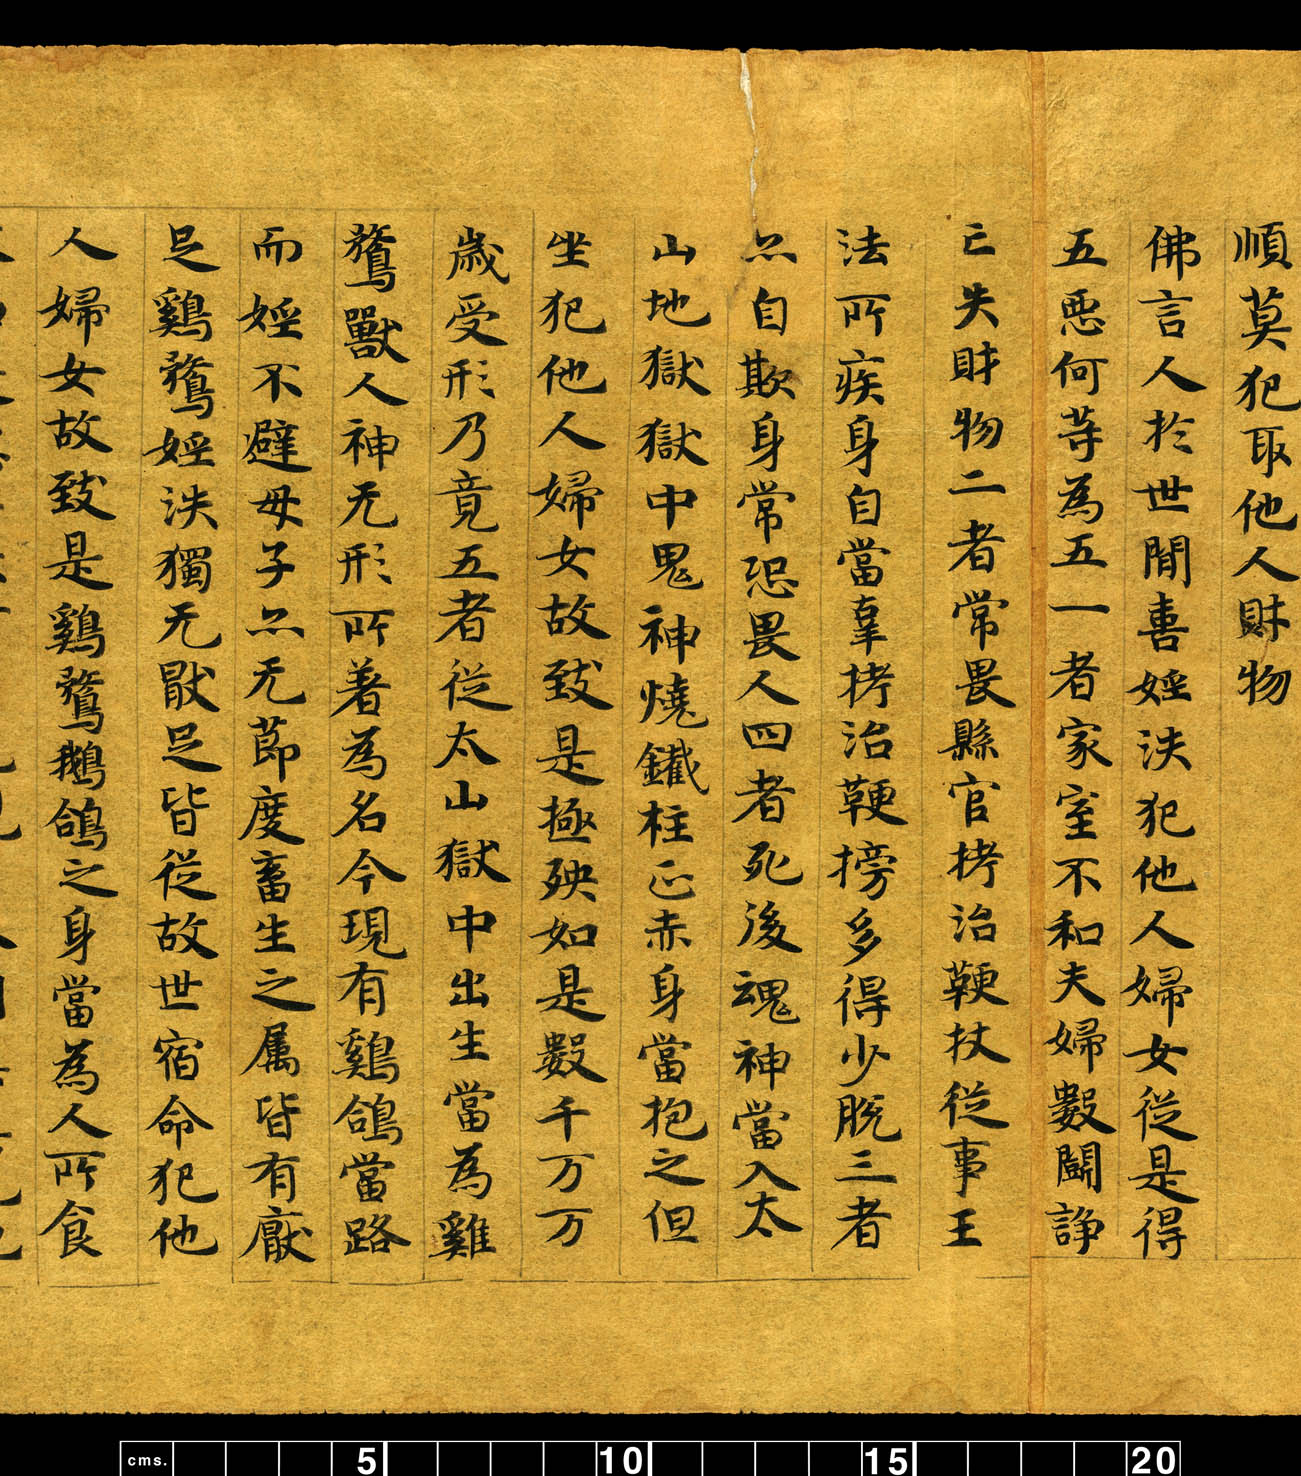 順莫犯取他人財物
佛言人於世間喜婬泆犯他人婦女従是得
五惡何等為五一者家室不和夫婦數鬪諍
亡失財物二者常畏縣官拷治鞕杖従事王
法所疾身自當辜拷治鞕搒多得少脫三者
亦自欺身常恐畏人四者死後魂神當入太
山地獄獄中鬼神燒鐵柱正赤身當抱之但
坐犯他人婦女故致是極殃如是數千万万
歲受形乃竟五者従太山獄中出生當為雞
鶩獸人神无形所著為名今現有鷄鴿當路
而婬不避母子亦无節度畜生之属皆有厭
足鷄鶩婬泆獨无猒足皆従故世宿命犯他
人婦女故致是鷄鶩鵝鴿之身當為人所食
cms. 5 10 15 20